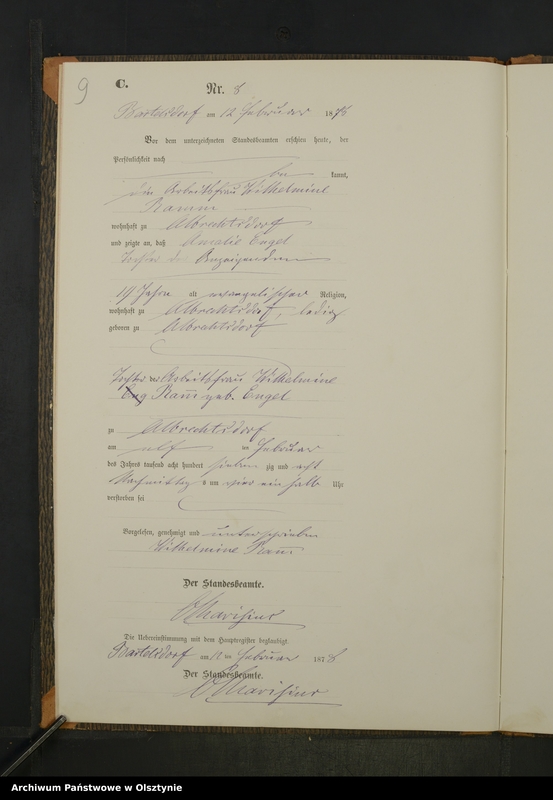 9
C.
Nr. 8
Bartelsdorf am 12 Februar 1878
Vor dem unterzeichneten Standesbeamten erschien heute, der
Persönlichkeit nach
be kannt,
die Arbeitsfrau Wilhelmine
Ramm
wohnhaft zu Albrechtsdorf
und zeigte an, daß Amalie Engel
Tochter der Anzeigenden
19 Jahre alt evangelischer Religion,
wohnhaft zu Albrechtsdorf, ledig
geboren zu Albrechtsdorf
Tochter der Arbeitsfrau Wilhelmine
Eng Ram̄ geb. Engel
zu Albrechtsdorf
am elf ten Februar
des Jahres tausend acht hundert sieben zig und acht
Nachmittag s um vier ein halb Uhr
verstorben sei
Vorgelesen, genehmigt und unterschrieben
Wilhelmine Ram̄
Der Standesbeamte.
Die Uebereinstimmung mit dem Hauptregister beglaubigt.
Bartelsdorf am 12 ten Februar 1878
Der Standesbeamte.
Archiwum Państwowe w Olsztynie